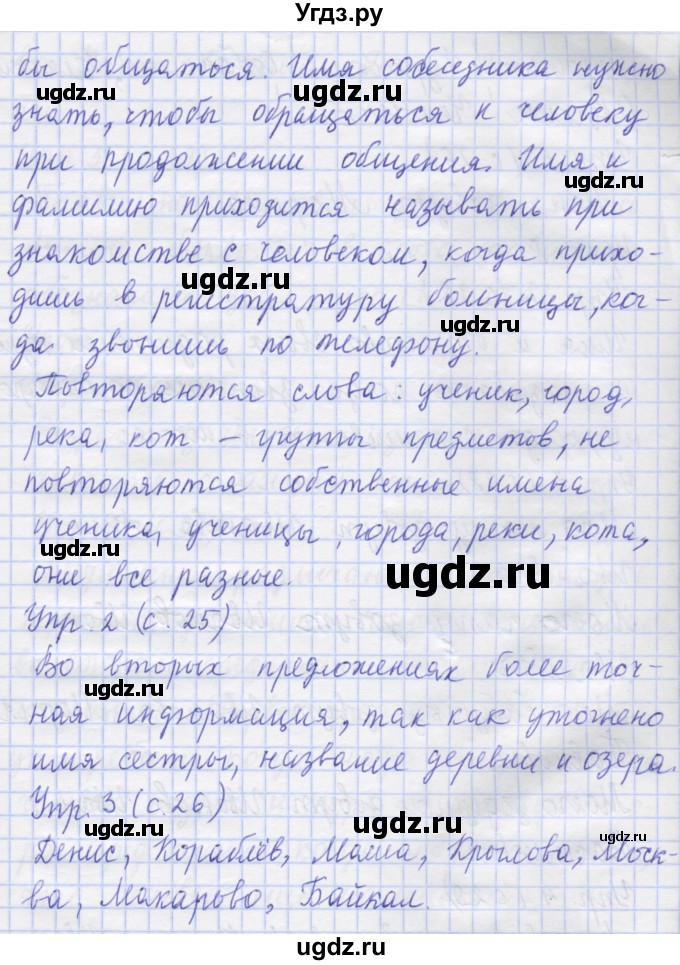 Угдз.ру
бы общаться. Имя собеседника нужно
знать, чтобы обращаться к человеку
при продолжении общения. Имя и
фамилию приходится называть при
знакомстве с человеком, когда прихо-
дишь в регистратуру больницы, ког-
да звонишь по телефону.
Повторяются слова: ученик, город,
река, кот – группы предметов, не
повторяются собственные имена
ученика, ученицы, города, реки, кота,
они все разные.
Упр. 2 (с. 25)
Во вторых предложениях более точ-
ная информация, так как уточнено
имя сестры, название деревни и озера.
Упр. 3 (с. 26)
Денис, Кораблёв, Маша, Крылова, Моск-
ва, Макарово, Байкал.
ugdz.ru
ugdz.ru
ugdz.ru
ugdz.ru
ugdz.ru
ugdz.ru
ugdz.ru
ugdz.ru
ugdz.ru
ugdz.ru
ugdz.ru
ugdz.ru
ugdz.ru
ugdz.ru